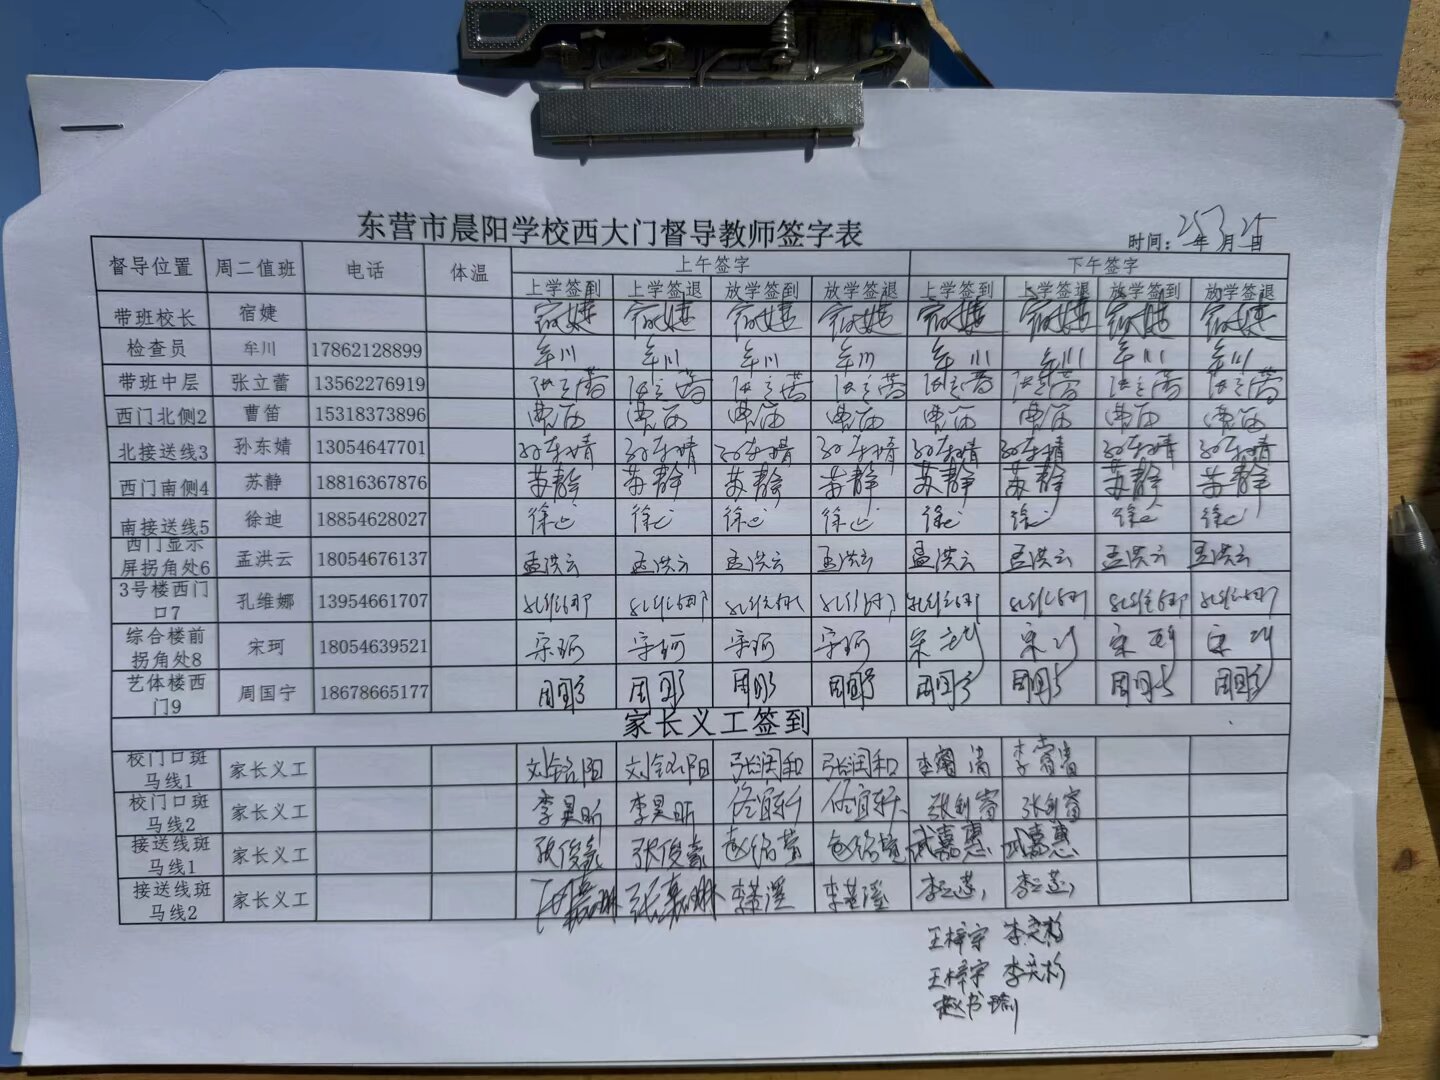 东营市晨阳学校西大门督导教师签字表
时间：25年3月25日
督导位置 周二值班 电话 体温 上午签字 下午签字
上学签到 上学签退 放学签到 放学签退 上学签到 上学签退 放学签到 放学签退
带班校长 宿婕 宿婕 宿婕 宿婕 宿婕 宿婕 宿婕 宿婕 宿婕
检查员 牟川 17862128899 牟川 牟川 牟川 牟川 牟川 牟川 牟川 牟川
带班中层 张立蕾 13562276919 张立蕾 张立蕾 张立蕾 张立蕾 张立蕾 张立蕾 张立蕾 张立蕾
西门北侧2 曹笛 15318373896 曹笛 曹笛 曹笛 曹笛 曹笛 曹笛 曹笛 曹笛
北接送线3 孙东婧 13054647701 孙东婧 孙东婧 孙东婧 孙东婧 孙东婧 孙东婧 孙东婧 孙东婧
西门南侧4 苏静 18816367876 苏静 苏静 苏静 苏静 苏静 苏静 苏静 苏静
南接送线5 徐迪 18854628027 徐迪 徐迪 徐迪 徐迪 徐迪 徐迪 徐迪 徐迪
西门显示
屏拐角处6 孟洪云 18054676137 孟洪云 孟洪云 孟洪云 孟洪云 孟洪云 孟洪云 孟洪云 孟洪云
3号楼西门
口7 孔维娜 13954661707 孔维娜 孔维娜 孔维娜 孔维娜 孔维娜 孔维娜 孔维娜 孔维娜
综合楼前
拐角处8 宋珂 18054639521 宋珂 宋珂 宋珂 宋珂 宋珂 宋珂 宋珂 宋珂
艺体楼西
门9 周国宁 18678665177 周国宁 周国宁 周国宁 周国宁 周国宁 周国宁 周国宁 周国宁
家长义工签到
校门口斑
马线1 家长义工 刘铭阳 刘铭阳 张润和 张润和
校门口斑
马线2 家长义工 李昊昕 李昊昕 佟宜轩 佟宜轩 张钊富 张钊富
接送线斑
马线1 家长义工 张俊豪 张俊豪 武嘉惠 武嘉惠
接送线斑
马线2 家长义工 张嘉琳 张嘉琳
王梓宇 李奕杉
王梓宇 李奕杉
赵书瑜